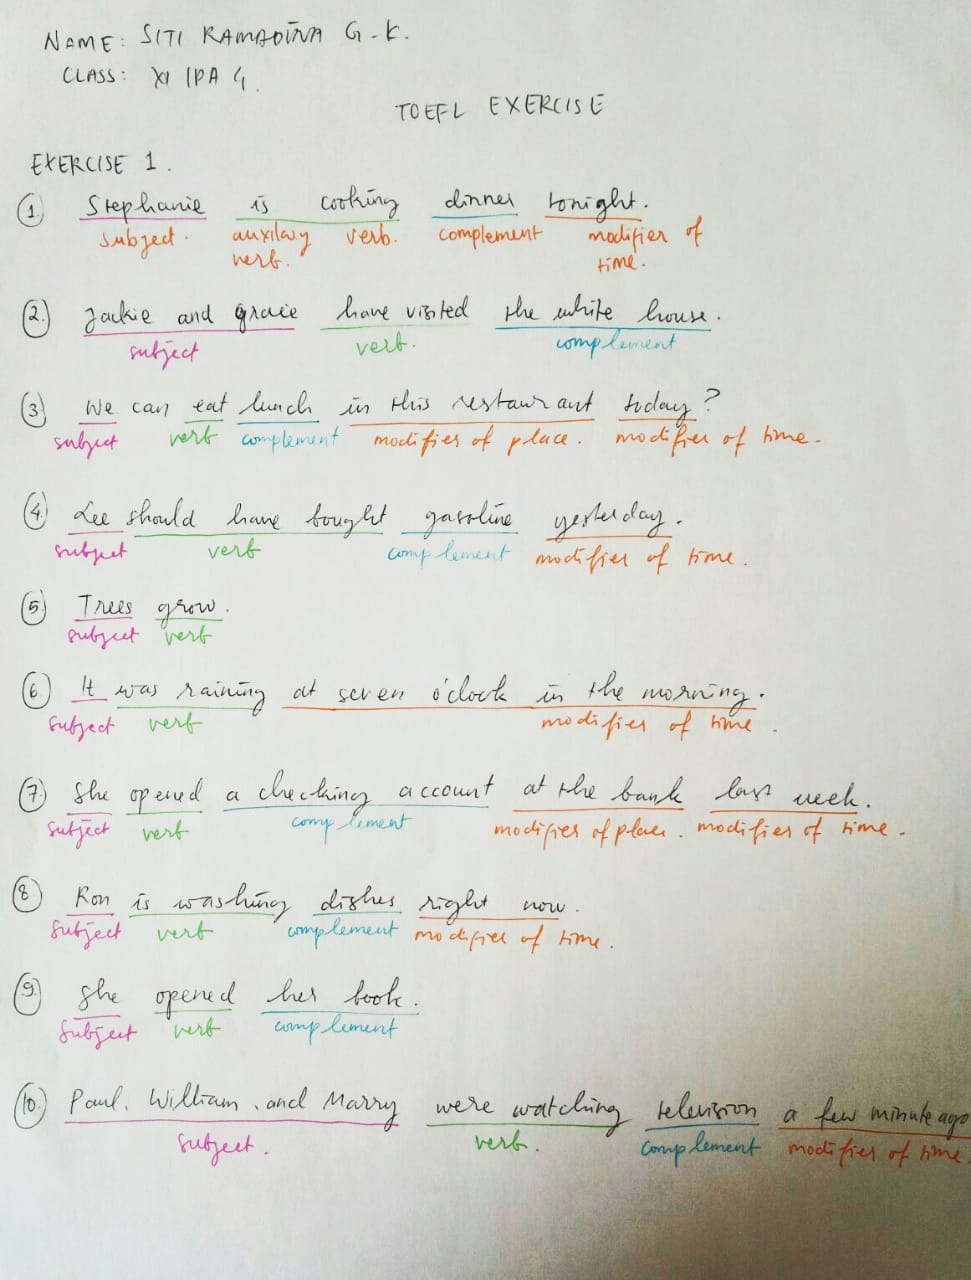 NAME: SITI RAMADINA G.K.
CLASS: XI IPA 4
TOEFL EXERCISE
EXERCISE 1.
1. Stephanie is cooking dinner tonight.
subject. auxilary verb. complement modifier of
verb. time.
2. Jackie and gracie have visited the white house.
subject verb. complement
3. We can eat lunch in this restaurant today?
subject verb complement modifier of place. modifier of time.
4. Lee should have bought gasoline yesterday.
subject verb complement modifier of time.
5. Trees grow.
subject verb
6. It was raining at seven o'clock in the morning.
subject verb modifier of time.
7. She opened a checking account at the bank last week.
subject verb complement modifier of place. modifier of time.
8. Ron is washing dishes right now.
subject verb complement modifier of time.
9. She opened her book.
subject verb complement
10. Paul, William, and Marry were watching television a few minute ago
subject. verb. complement modifier of time.